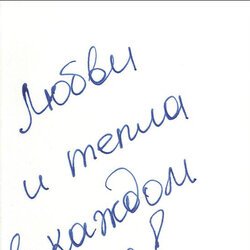 Любви
и тепла
в каждом